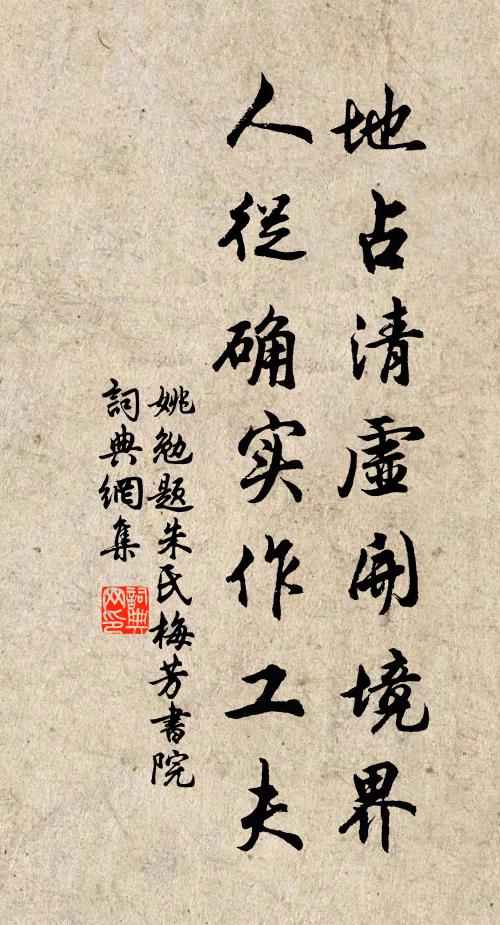 地占清虚開境界
人從确实作工夫
姚勉题朱氏梅芳書院
詞典網集
詞典网印